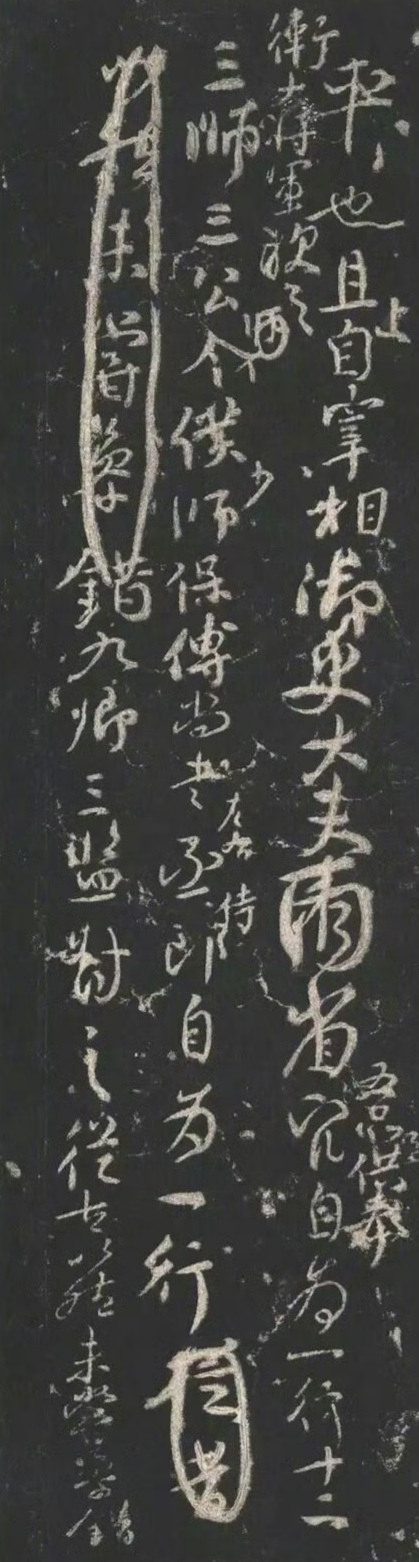 平也且上自宰相御史大夫兩省五品供奉官自為一行十二
衛大將軍次之
三師三公令僕少師保傅尚書左右丞侍郎自為一行
未嘗參錯九卿三監對之從古以然未嘗參錯